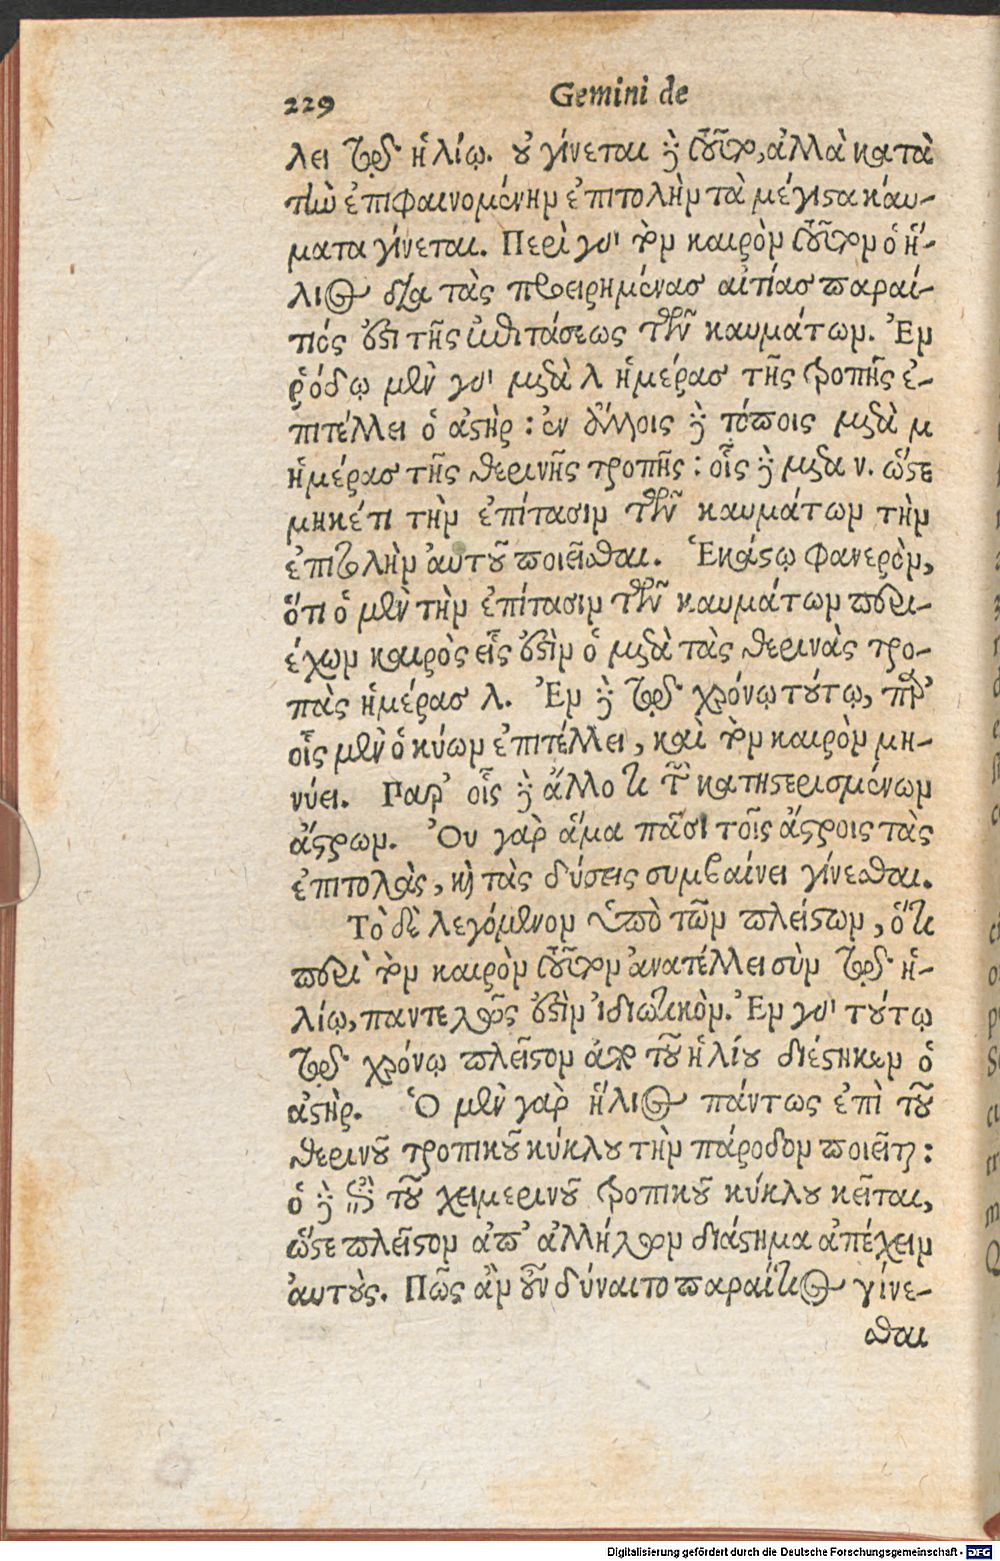 229 Gemini de
λει τῷ ἡλίῳ. οὐ γίνεται δὲ τοῦτο, ἀλλὰ κατὰ
τὴν ἐπιφαινομένην ἐπιτολὴν τὰ μέγιστα καύ-
ματα γίνεται. Περὶ γὰρ τὸν καιρὸν τοῦτον ὁ ἥ-
λιος διὰ τὰς προειρημένας αἰτίας παραί-
τιός ἐστι τῆς ἐπιτάσεως τῶν καυμάτων. Ἐν
ῥόδῳ μὲν γὰρ μετὰ λ ἡμέρας τῆς τροπῆς ἐ-
πιτέλλει ὁ ἀστὴρ: ἐν ἄλλοις δὲ τόποις μετὰ μ
ἡμέρας τῆς θερινῆς τροπῆς: οἷς δὲ μετα ν. ὥστε
μηκέτι τὴν ἐπίτασιν τῶν καυμάτων τὴν
ἐπιτολὴν ἀυτοῦ ποιεῖσθαι. Ἑκάστῳ φανερὸν,
ὅτι ὁ μὲν τὴν ἐπίτασιν τῶν καυμάτων περι-
έχων καιρὸς εἷς ἐστὶν ὁ μετὰ τὰς θερινὰς τρο-
πὰς ἡμέρας λ. Ἐν δὲ τῷ χρόνῳ τούτῳ, παρ’
οἷς μὲν ὁ κύων ἐπιτέλλει, καὶ τὸν καιρὸν μη-
νύει. Παρ’ οἷς δὲ ἄλλο τι τῶν κατηστερισμένων
ἄστρων. Ὀυ γὰρ ἅμα πᾶσι τοῖς ἄστροις τὰς
ἐπιτολὰς, καὶ τὰς δύσεις συμβαίνει γίνεσθαι.
Τὸ δὲ λεγόμενον ὑπὸ τῶν πλείστων, ὅτι
περὶ τὸν καιρὸν τοῦτον ἀνατέλλει σὺν τῷ ἡ-
λίῳ, παντελῶς ἐστὶν ἰδιωτικὸν. Ἐν γὰρ τούτῳ
τῷ χρόνῳ πλεῖστον ἀπὸ τοῦ ἡλίου διέστηκεν ὁ
ἀστὴρ. Ὁ μὲν γὰρ ἥλιος πάντως ἐπὶ τοῦ
θερινοῦ τροπικοῦ κύκλου τὴν πάροδον ποιεῖται:
ὁ δὲ ἐπὶ τοῦ χειμερινοῦ τροπικοῦ κύκλου κεῖται,
ὥστε πλεῖστον ἀπ’ ἀλλήλων διάστημα ἀπέχειν
ἀυτοὺς. Πῶς ἂν οὖν δύναιτο παραίτιος γίνε-
σθαι
Digitalisierung gefördert durch die Deutsche Forschungsgemeinschaft - DFG